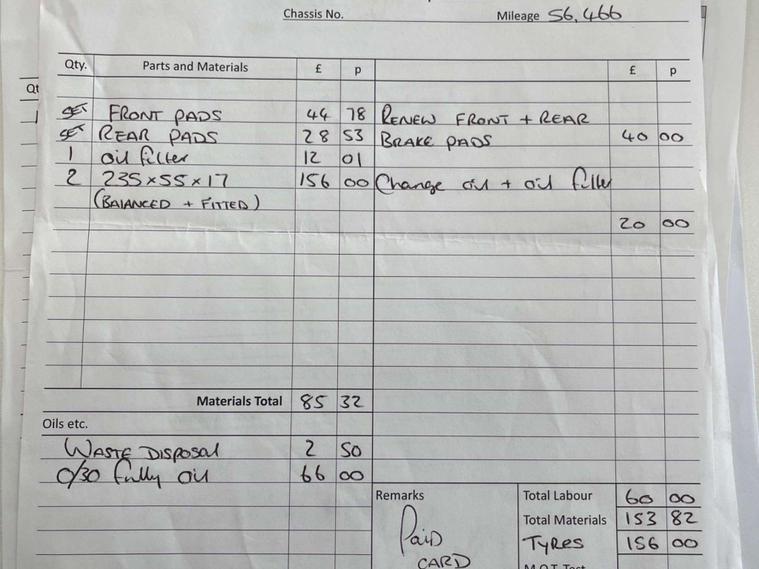 Chassis No. Mileage 56,466
Qty. Parts and Materials £ p £ p
SET FRONT PADS 44 78 RENEW FRONT + REAR
SET REAR PADS 28 53 BRAKE PADS 40 00
1 oil filter 12 01
2 235 x 55 x 17 156 00 Change oil + oil filter
(BALANCED + FITTED)
20 00
Materials Total 85 32
Oils etc.
WASTE DISPOSAL 2 50
0/30 fully oil 66 00
Remarks Total Labour 60 00
Total Materials 153 82
PAID TYRES 156 00
CARD